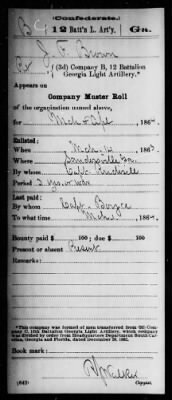 (Confederate.)
B 12 Batt'n L. Art'y. Ga.
J. F. Brown
(3d) Company B, 12 Battalion
Georgia Light Artillery.*
Appears on
Company Muster Roll
of the organization named above,
for Mch & Apl, 186
Enlisted:
When Mch. 12, 186
Where Sandersville Ga.
By whom Capt.
Period 3 yrs. or war
Last paid:
By whom Capt.
To what time Mch 1, 186
Bounty paid $ 100; due $ 100
Present or absent Present
Remarks:
*This company was formed of men transferred from Old Company C, 12th Battalion Georgia Light Artillery, which company was divided by order from Department Headquarters South Carolina, Georgia and Florida, dated December 28, 1862.
Book mark:
(642) Copyist.